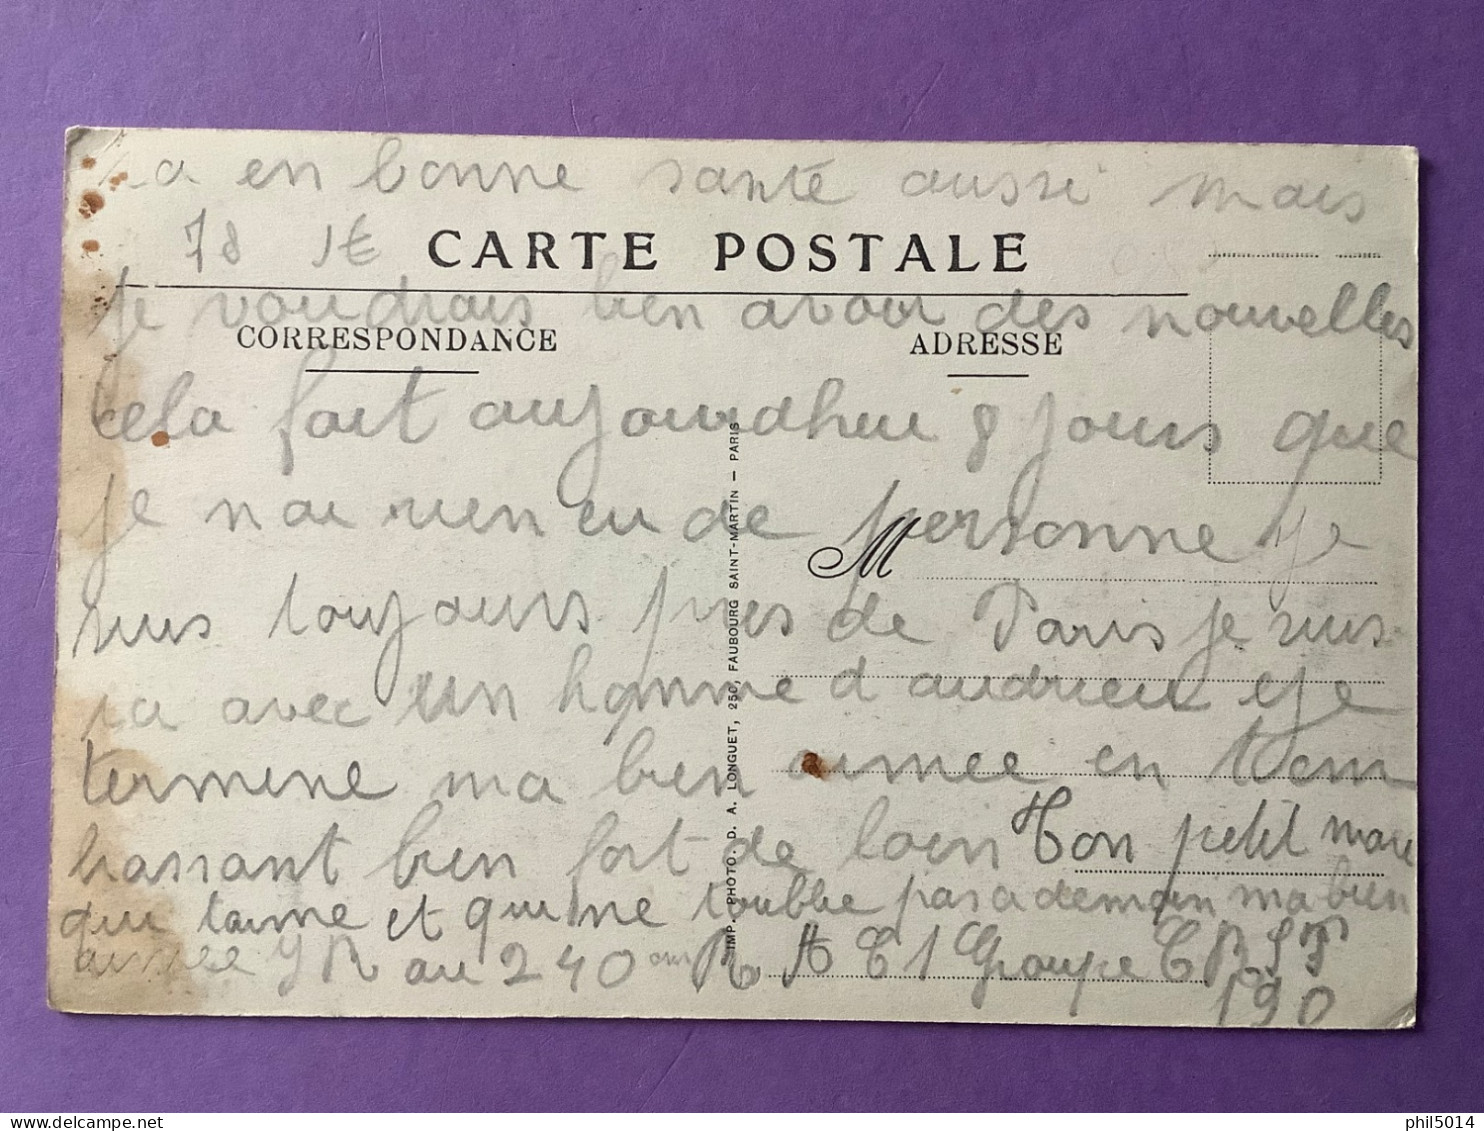 en bonne santé aussi mais
78 1€
CARTE POSTALE
je voudrais bien avoir des nouvelles
CORRESPONDANCE
ADRESSE
cela fait aujourdhui 8 jours que
je nai rien eu de personne je
suis toujours pres de Paris je suis
avec un homme d audrieu je
termine ma bien aimee en tem
brassant bien fort de loin Ton petit mari
qui taime et qui ne toublie pas a demain ma bien
aimee Y R au 240 em R A T 1 Groupe
190
M
IMP. PHOTO. D. A. LONGUET, 250, FAUBOURG SAINT-MARTIN — PARIS
phil5014